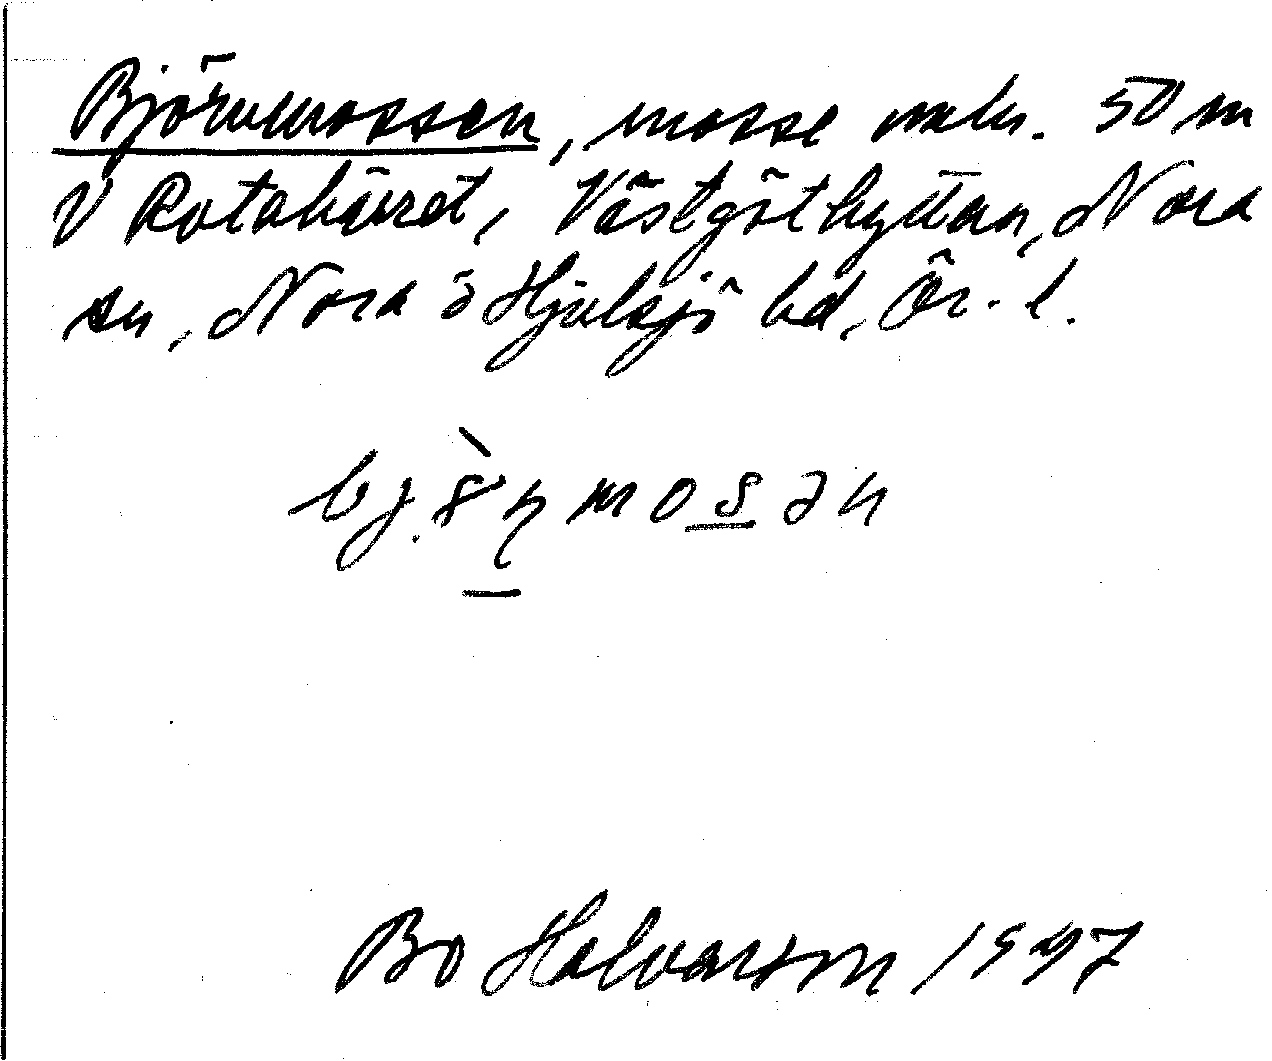 Björnmossen, mosse omkr. 50 m
V Rotakärret, Västgöthyttan, Nora
sn, Nora o Hjulsjö bd, Ör. l.
Bo Halvarson 1947